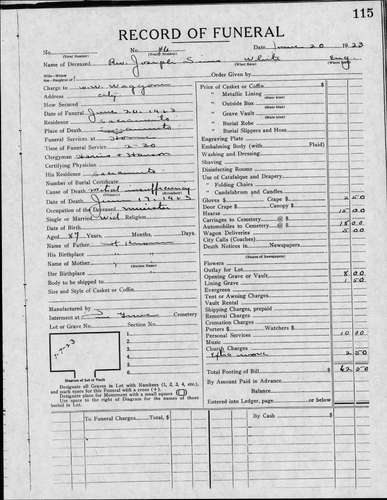 115
RECORD OF FUNERAL
No. No. 46 Date June 20 1923
(Total Number) (Yearly Number)
Name of Deceased Rev. Joseph Sims White Eng.
(What Race) (Where Born)
Wife—Widow
Son—Daughter of
Order Given by
Charge to W.W. Waggoner
Address City
How Secured
Date of Funeral June 20, 1923
Residence Sacramento
Place of Death Sacramento
Funeral Services at Home
Time of Funeral Service 2-30
Clergyman Harris & Hanson
Certifying Physician
His Residence Sacramento
Number of Burial Certificate
Cause of Death Mitral insufficiency
Date of Death June 17, 1923
Occupation of the Deceased minister
Single or Married Wid Religion
Date of Birth
Aged 87 Years, Months, Days.
Name of Father
His Birthplace "
Name of Mother "
(Maiden Name)
Her Birthplace "
Body to be shipped to
Size and Style of Casket or Coffin
Manufactured by
Interment at Pine Grove Cemetery
Lot or Grave No. Section No.
1-7-23
1.
2.
3.
4.
5.
6.
Diagram of Lot or Vault
Designate all Graves in Lot with Numbers (1, 2, 3, 4, etc.),
and mark space for this Funeral with a cross (+).
Designate place for Monument with a small square
Use space to right of Diagram for the names of those
buried in Lot.
Price of Casket or Coffin
" Metallic Lining
(State Kind)
" Outside Box
(State Kind)
" Grave Vault
(State Kind)
" Burial Robe
" Burial Slippers and Hose
Engraving Plate
Embalming Body (with Fluid)
Washing and Dressing
Shaving
Disinfecting Rooms
Use of Catafalque and Drapery
" Folding Chairs
" Candelabrum and Candles
Gloves $ Crape $ 2 50
Door Crape $ Canopy $
Hearse 15 00
Carriages to Cemetery @ $
Automobiles to Cemetery @ $ 18 00
Wagon Deliveries 5 00
City Calls (Coaches)
Death Notices in Newspapers
(Names of Newspapers)
Flowers
Outlay for Lot
Opening Grave or Vault 8 00
Lining Grave 1 50
Evergreen
Tent or Awning Charges
Vault Rental
Shipping Charges, prepaid
Removal Charges
Cremation Charges
Porters $ Watchers $
Personal Services 10 00
Music
Church Charges
Extra work 2 50
Total Footing of Bill $ 62 50
By Amount Paid in Advance
Balance
Entered into Ledger, page or below
To Funeral Charges Total, $ By Cash $